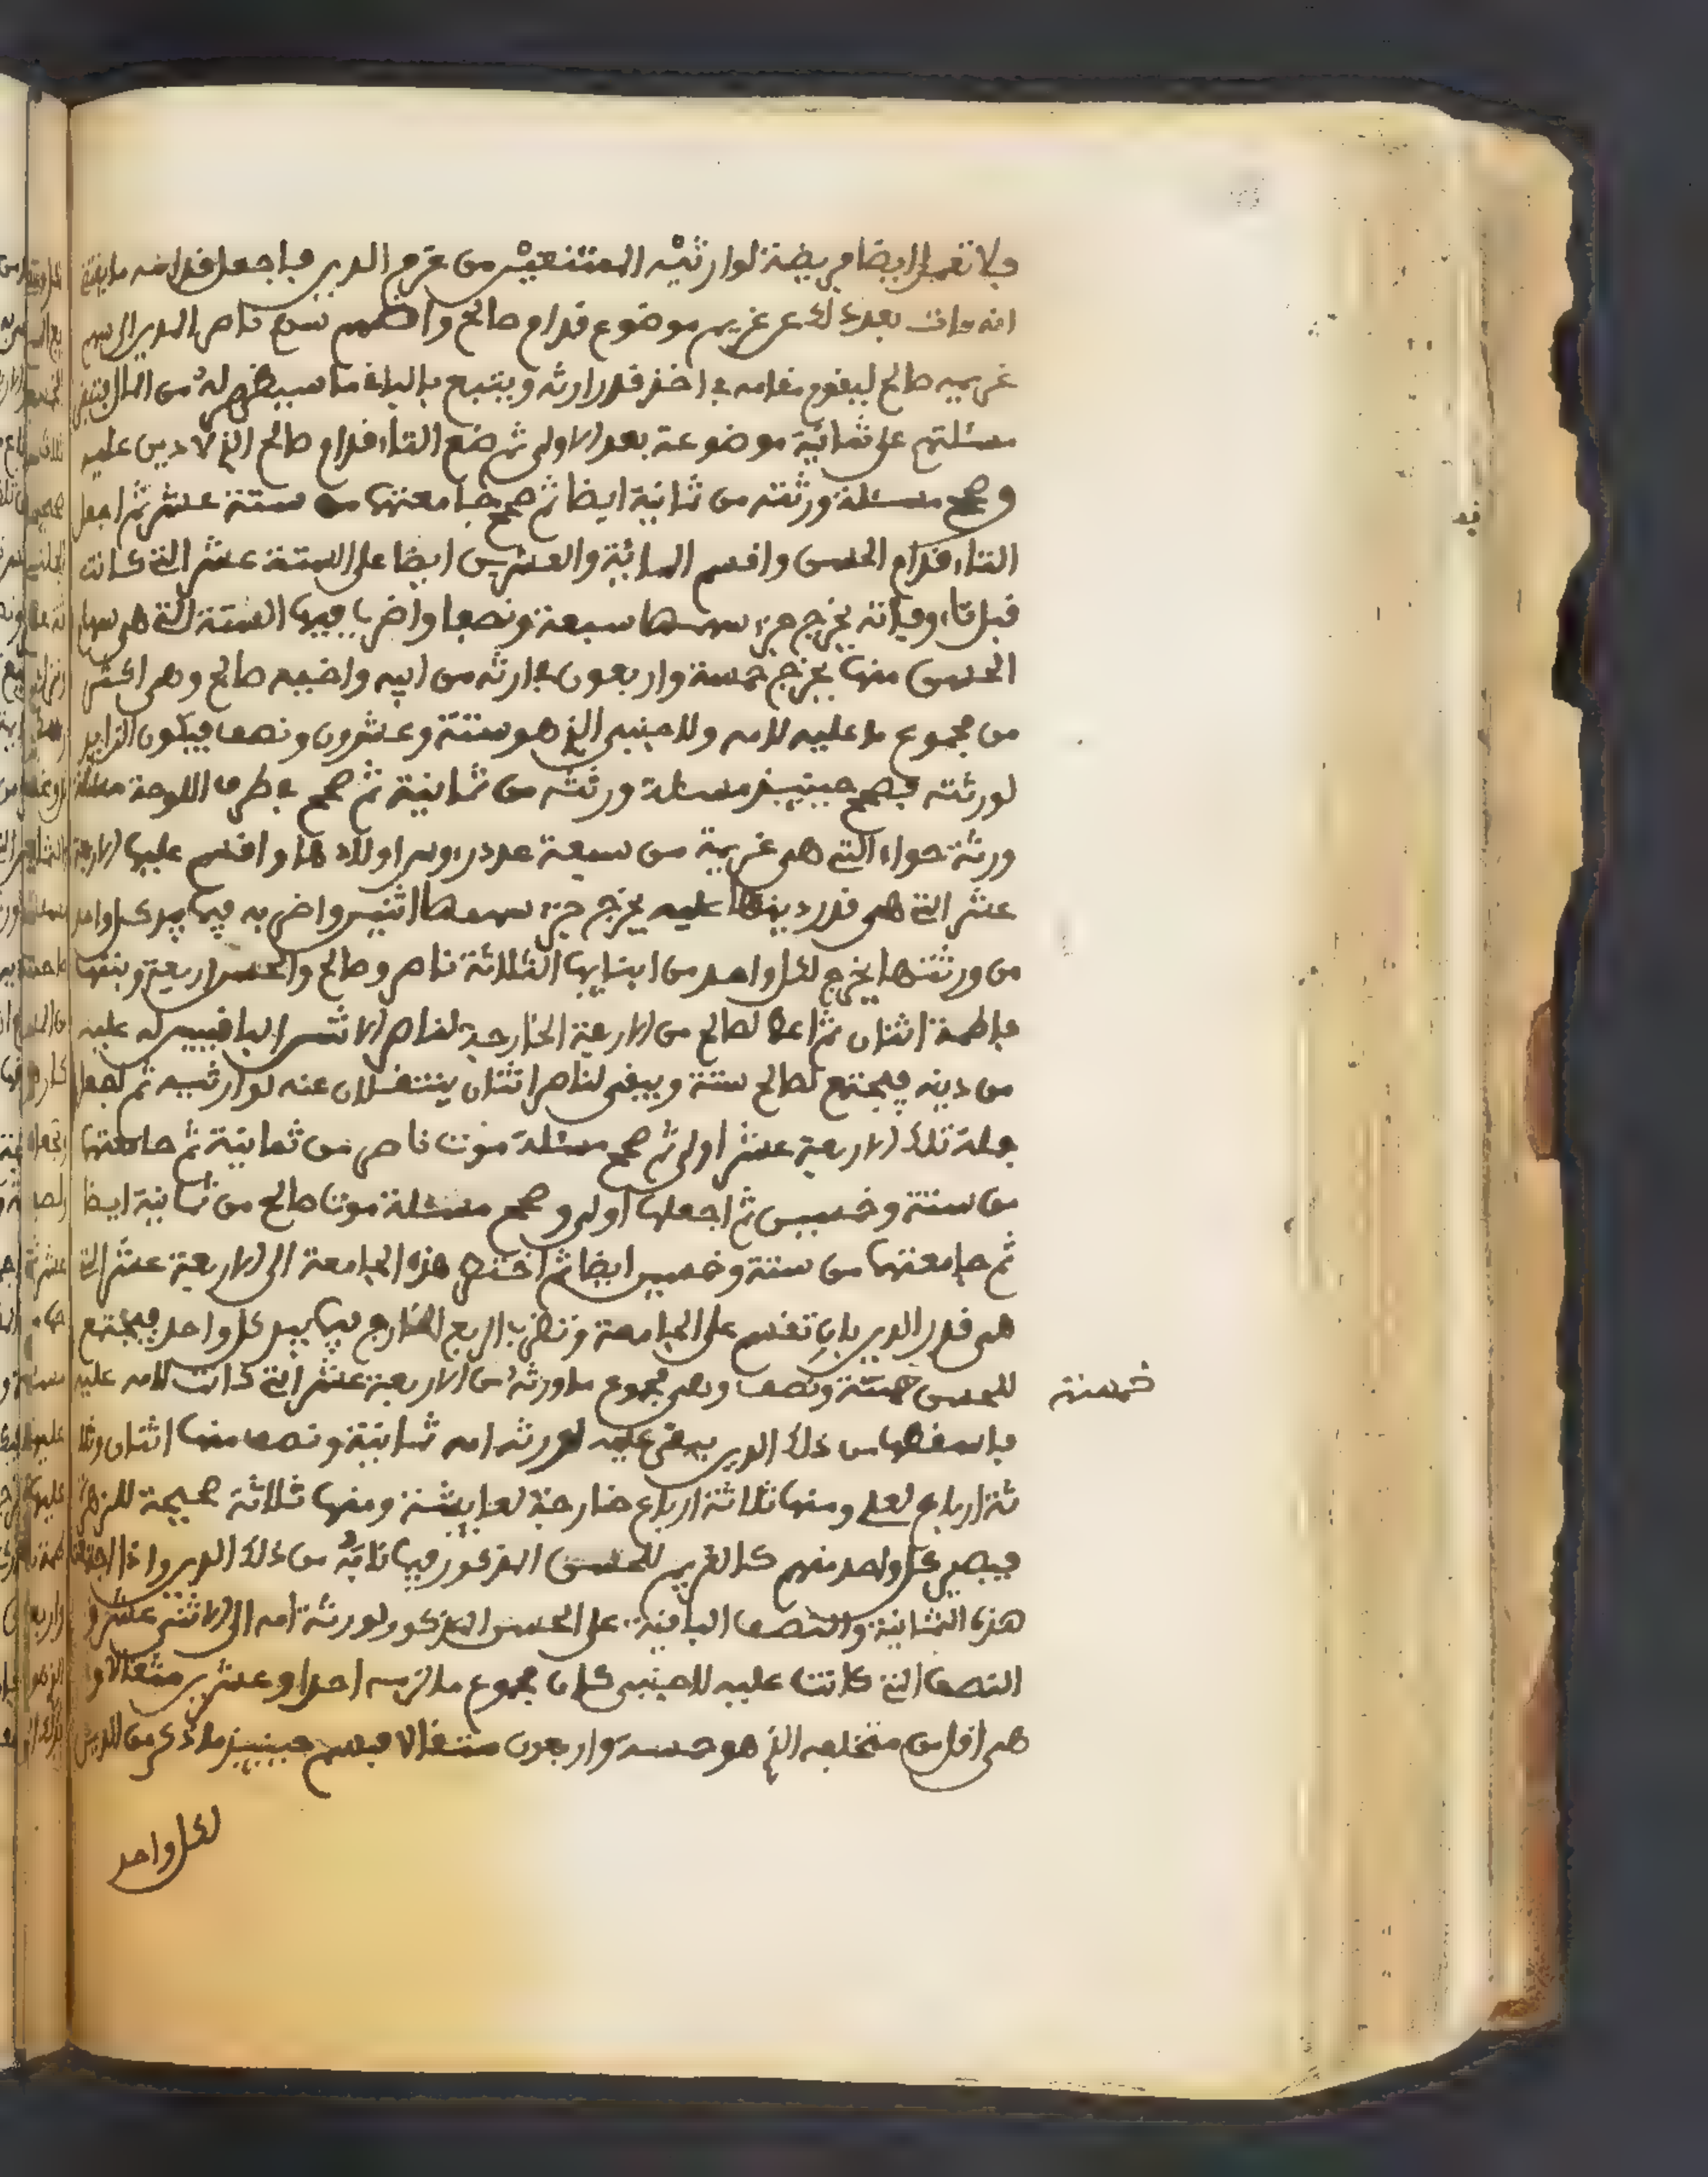 فلا تعمل ايضا فريضة لوارثيه المنتفعين من غرم الدين فاجعل قدامه ما يقتضي
انه مات بعد ذلك عن غريم موضوع قدام صالح واضمم سبع ناصر المدين الى سهم
غريمه صالح ليقوم مقامه في اخذ قدر ارثه ويتبع بالباقي ما سيظهر له من المال
مسئلتهم على ثمانية موضوعة بعد الاولى ثم ضع التاء قدام صالح الذي لا دين عليه
وصحح مسئلة ورثته من ثمانية ايضا ثم صحح جامعتها من ستة عشر ثم اجعل
التاء قدام الحسن واقسم المائة والعشرين ايضا على الستة عشر التي كانت
قبل تاء وفاته يخرج جزء سهمها سبعة ونصفا واضربا فيها الستة التي هي سهام
الحسن منها يخرج خمسة واربعون ارثه من ابيه واخيه صالح وهي اكثر
من مجموع ما عليه لامه وللاجنبي الذي هو ستة وعشرون ونصف فيكون الزايد
لورثته فصحح حينيذ مسئلة ورثته من ثمانية ثم صحح في طرف اللوحة مسئلة
ورثة حواء التي هي غريمة من سبعة عدد رءوس اولادها واقسم عليها الاربعة
عشر التي هي قدر دينها عليه يخرج جزء سهمها اثنين واضربه فيما بيد كل واحد
من ورثتها يخرج لكل واحد من ابنايها الثلاثة ناصر وصالح والحسن اربعة وبنتها
فاطمة اثنان ثم اعط لصالح من الاربعة الخارجة لناصر الاثنين الباقيين له عليه
من دينه فيجتمع لصالح ستة ويبقى لناصر اثنان ينتقلان عنه لوارثيه ثم تجعل
جملة تلك الاربعة عشر اولى ثم صحح مسئلة موت ناصر من ثمانية ثم جامعتها
من ستة وخمسين ثم اجعلها اولى وصحح مسئلة موت صالح من ثمانية ايضا
ثم جامعتها من ستة وخمسين ايضا ثم هذه الجامعة الى الاربعة عشر التي
هي قدر الدين بان تقسم على الجامعة وتضرب الربع الخارج فيما بيد كل واحد فيجتمع
للحسن خمسة ونصف وهي مجموع ما ورثه من الاربعة عشر التي كانت لامه عليه
خمسة
فاسقطها من ذلك الدين يبقى عليه لورثة امه ثمانية ونصف منها اثنان وثلا
ثة ارباع لعلي ومنها ثلاثة ارباع خارجة لعايشة ومنها ثلاثة صحيحة للزهرا
فيصير كل واحد منهم كالغريم للحسن المذكور فيما نابه من ذلك الدين واذا اجتمعت
هذه الثمانية والنصف الباقية على الحسن المذكور لورثة امه الى الاثني عشر و
النصف التي كانت عليه للاجنبي كان مجموع ما لزمه احدا وعشرين مثقالا و
هي اقل من متخلفه الذي هو خمسة واربعون مثقالا فيسم حينيذ ما ذكر من الدين
لكل واحد